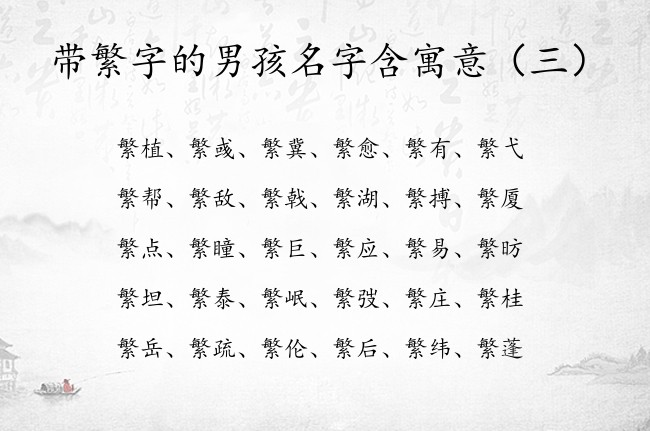 带繁字的男孩名字含寓意（三）
繁植、繁彧、繁冀、繁愈、繁有、繁弋
繁帮、繁敌、繁戟、繁湖、繁搏、繁厦
繁点、繁瞳、繁巨、繁应、繁易、繁昉
繁坦、繁泰、繁岷、繁弢、繁庄、繁桂
繁岳、繁疏、繁伦、繁后、繁纬、繁蓬